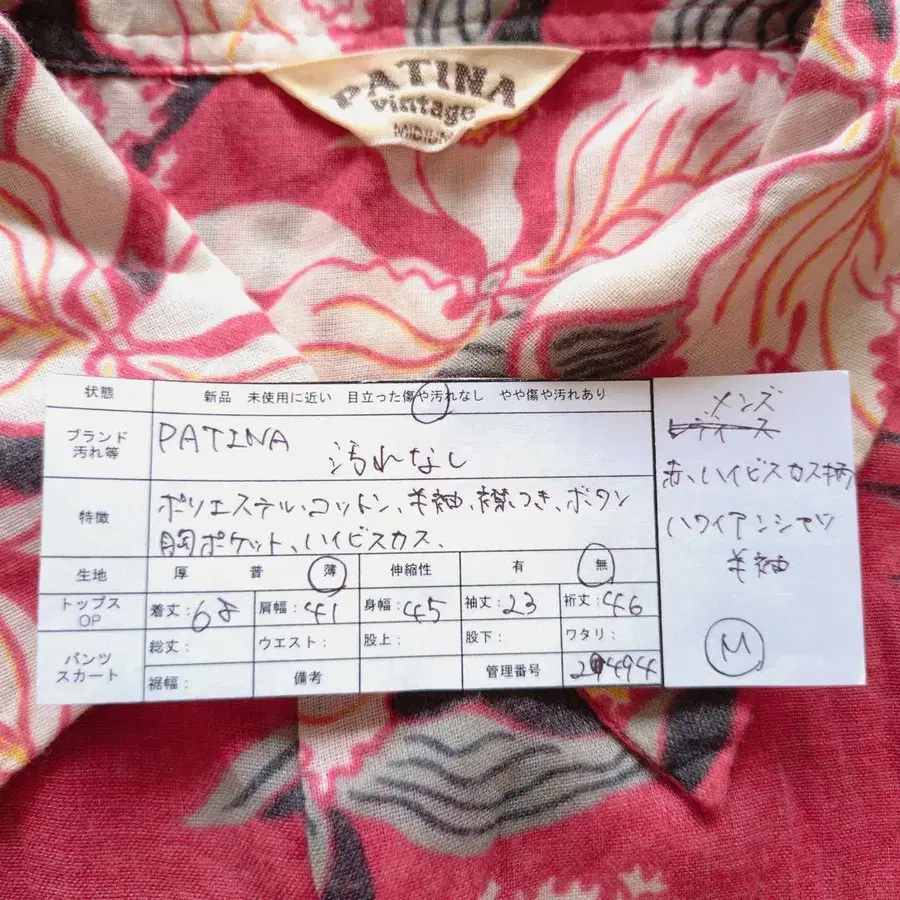 PATINA
vintage
MIDIUM
状態 新品 未使用に近い 目立った傷や汚れなし やや傷や汚れあり
ブランド 汚れ等 PATINA 汚れなし
特徴 ポリエステル、コットン、半袖、襟つき、ボタン
胸ポケット、ハイビスカス、
生地 厚 普 薄 伸縮性 有 無
トップス OP 着丈:68 肩幅:41 身幅:45 袖丈:23 裄丈:46
パンツ スカート 総丈: ウエスト: 股上: 股下: ワタリ:
裾幅: 備考 管理番号 29494
メンズ
レディース
赤、ハイビスカス柄
ハワイアンシャツ
半袖
M